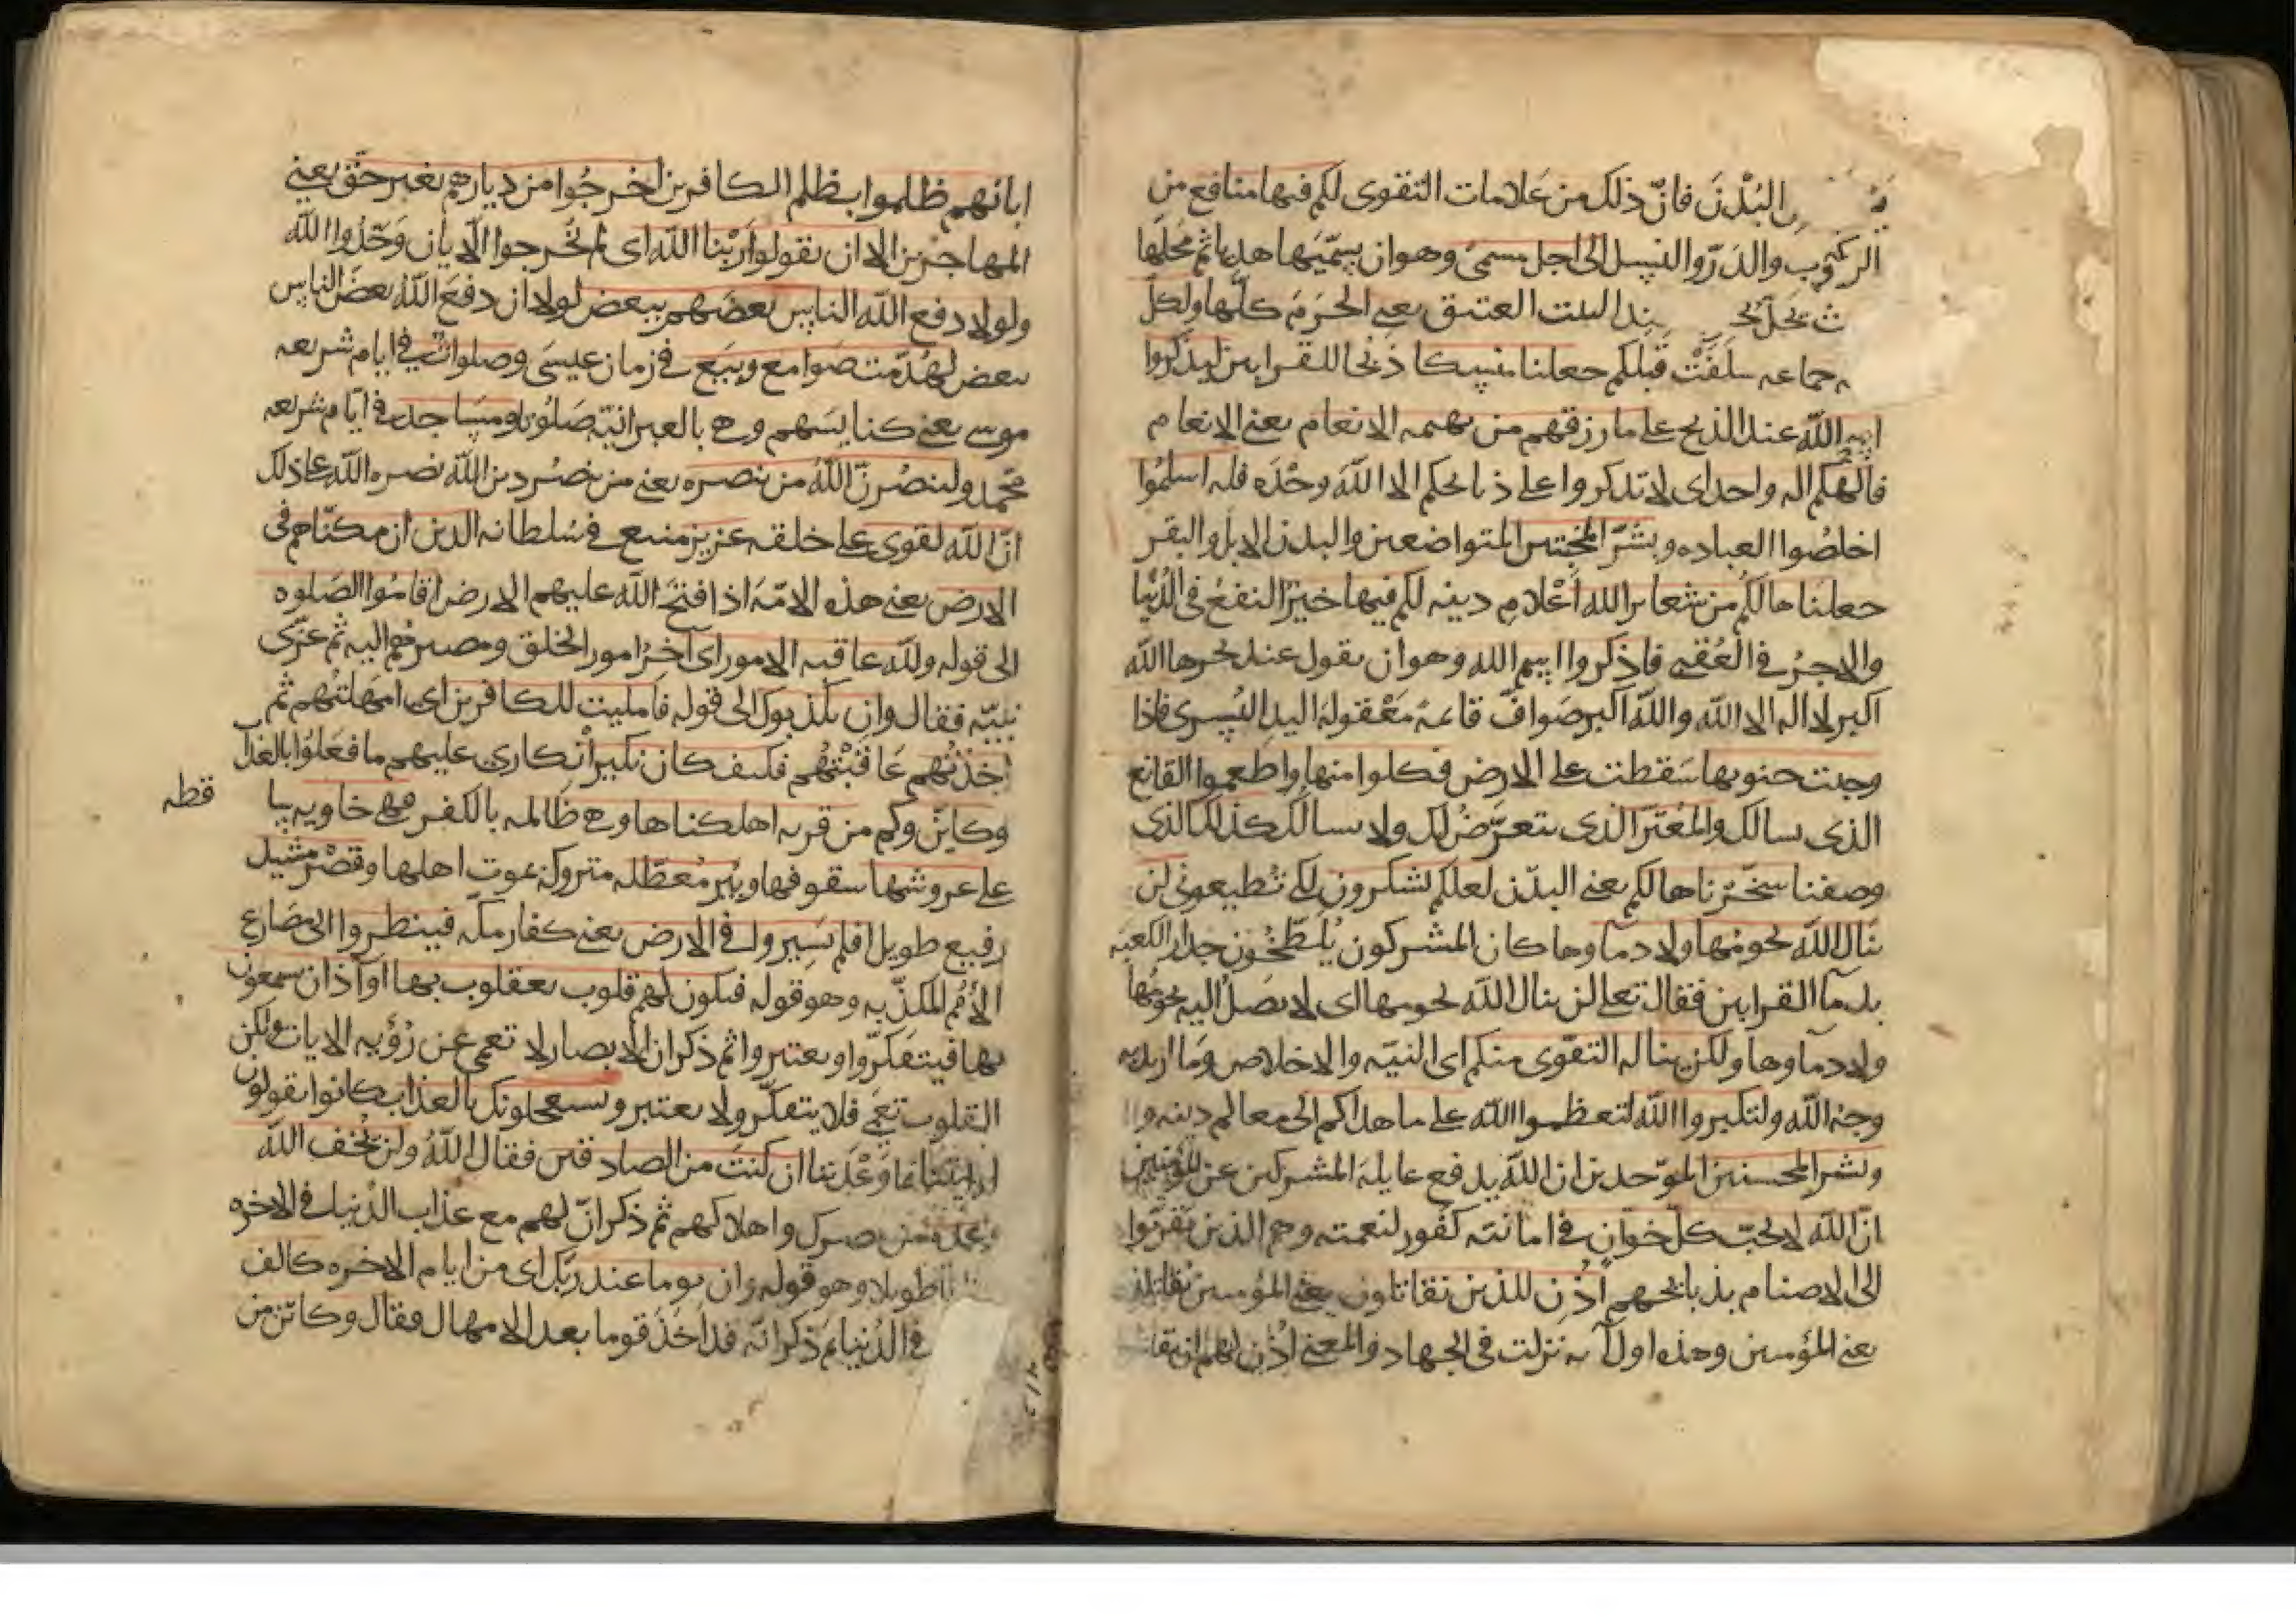 البُدْنَ فانّ ذلك من عَلامات التقوى لكم فيها منافع من
الركوب والدَرّ والنسل الى اجل مسمى وهو ان يسمّيَها هديا ثم محلها
العتيق يعني الحَرَمَ كلّها ولكلّ
جماعه سلَفَتْ قبلكم جعلنا منسكا ذَبْحا للقرابين ليذكروا
اسم الله عند الذبح على ما رزقهم من بهيمه الانعام يعني الانعام
فالهكم اله واحد اى لا تذكروا على ذبايحكم الا الله وحْدَه فله اسلمُوا
اخلصُوا العباده وبشرّ المخبتين المتواضعين والبدن الابل والبقر
جعلناها لكم من شعاير الله أعْلام دينه لكم فيها خيرٌ النفعُ فى الدُنْيا
والاجرُ فى العُقْبى فاذكروا اسم الله وهو ان يقول عند نحرها الله
اكبر لا اله الا الله والله اكبر صَوافّ قايمةً مَعْقولة اليد اليُسرى فاذا
وجبت جنوبها سَقطت على الارض فكلوا منها واطعموا القانع
الذى يسالك والمُعْترّ الذى يتعرَّضُ لك ولا يسالك كذلك الذى
وصفنا سخّرناها لكم يعنى البدْن لعلكم تشكرون لكى تُطيعونى لن
ينال الله لحومها ولا دماوها كان المشركون يُلطّخُون جدار الكعبة
بدمآ القرابين فقال تعالى لن ينال الله لحومها اى لا يصَلُ اليه لحومُها
ولا دماوها ولكن يناله التقوى منكم اى النيّه والاخلاص وَما اريد به
وجهُ الله ولتكبروا الله لتعظموا الله على ما هداكم الى معالم دينه
وبشر المحسنين الموّحدين ان الله يدفع غايلة المشركين عن المؤمنين
انّ الله لا يحبّ كلّ خوّانٍ فى امانته كفور لنعمته وهم الذين تقرّبُوا
الى الاصنام بذبايحهم اُذن للذين يقاتلون يعنى المؤمنين
يعنى المؤمنين وهذه اول آيه نزلت فى الجهاد والمعنى اُذِن لهم ان
بانهم ظلموا بظلم الكافرين اخرجُوا من ديارهم بغير حَقّ يعنى
المهاجرْين الا ان يقولوا ربّنا الله اى لم يُخرجوا الّا بان وَحّدُوا الله
ولولا دفع الله الناس بعضَهم ببعض لولا ان دفعَ الله بعضَ الناس
ببعض لهُدّمت صَوامع وبِيَع فى زمان عيسَى وصلواتٌ فى ايام شريعه
موسى يعنى كنايسَهم وهى بالعبرانيّة صَلُوتا ومسَاجد فى ايّام شريعه
محّمد ولينصُرنّ اللهُ من ينصره يعنى من ينصُر دين الله نصره الله على ذلك
انّ الله لقوى على خلقه عزيز منيع فى سُلطانه الذين ان مكنّاهم فى
الارض يعنى هذه الامّة اذا فتحَ الله عليهم الارض اقامُوا الصّلوه
الى قوله ولله عاقبه الامور اى آخرُ امور الخلق ومصيرهُم اليه ثم عزّى
نبيّه فقال وان يكذبوك الى قوله فامليت للكافرين اى امهَلتهُم ثم
اخذتُهم عَاقبْتهُم فكيف كان نكيرِ انكارى عليهم ما فعَلوُا بالعذاب
وكايّن وكم من قريه اهلكناها وهى ظالمه بالكفر فهى خاويه ساقطه
على عروشها سقوفها وبئر مُعَطّله متروكة بموت اهلها وقصْر مشيد
رفيع طويل افلم يَسِيروا فى الارض يعنى كفار مكّه فينظروا الى مصَارع
الأمُم المكذّبه وهو قوله فتكون لهم قلوب يعقلوب بها اوآذان يسمعون
بها فيتفكرّوا ويعتبروا ثم ذكر ان الابصار لا تعمى عن رُؤيه الايات ولكن
القلوب تعمى فلا يتفكّر ولا يعتبر ويستعجلونك بالعذاب كانوا يقولون
ان كنتَ من الصادقين فقال اللهُ ولن يُخلف الله
واهلاكهم ثم ذكر انّ لهم مع عذاب الدُنيا فى الاخره
طويلا وهو قوله وان يوما عند ربّك اى من ايام الاخره كالف
فى الدُنيا ثم ذكر انّه قد اخَذَ قوما بعد الامهال فقال وكايّن من